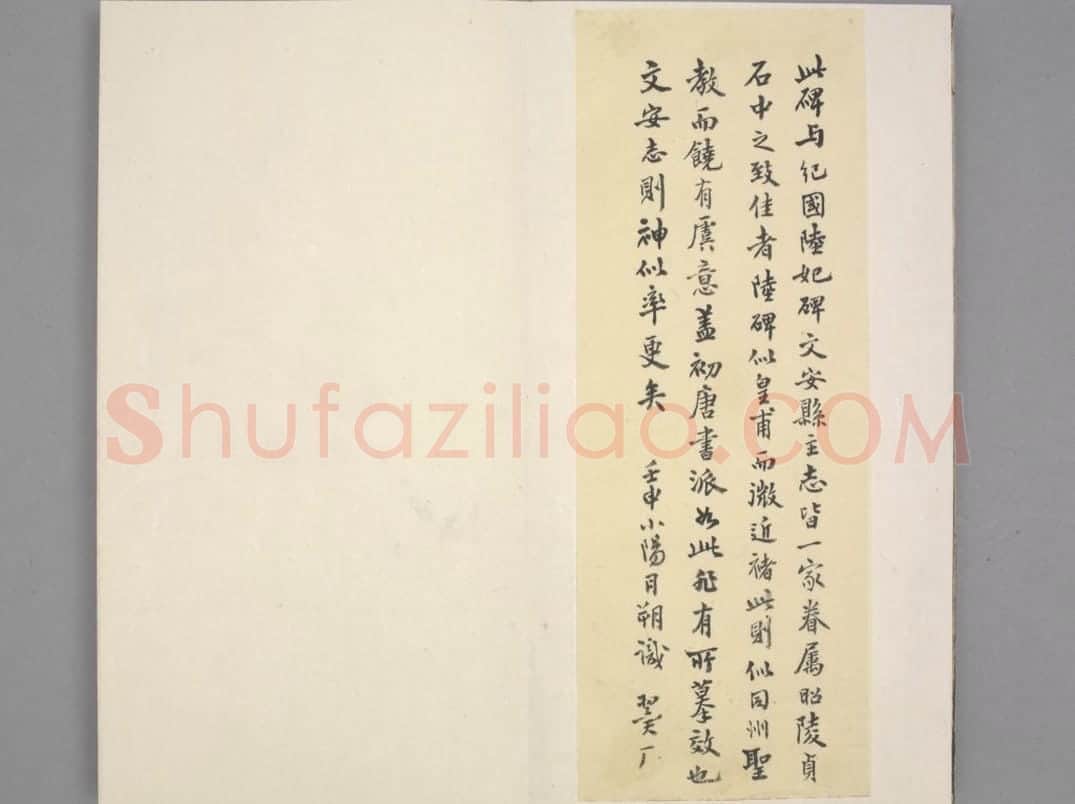 此碑与纪國陸妃碑文安縣主志皆一家眷属昭陵貞
石中之致佳者陸碑似皇甫而微近褚此則似同州聖
教而饒有虞意盖初唐書派如此非有所摹效也
文安志則神似率更矣 壬申小陽月朔識 翼厂
Shufaziliao.COM